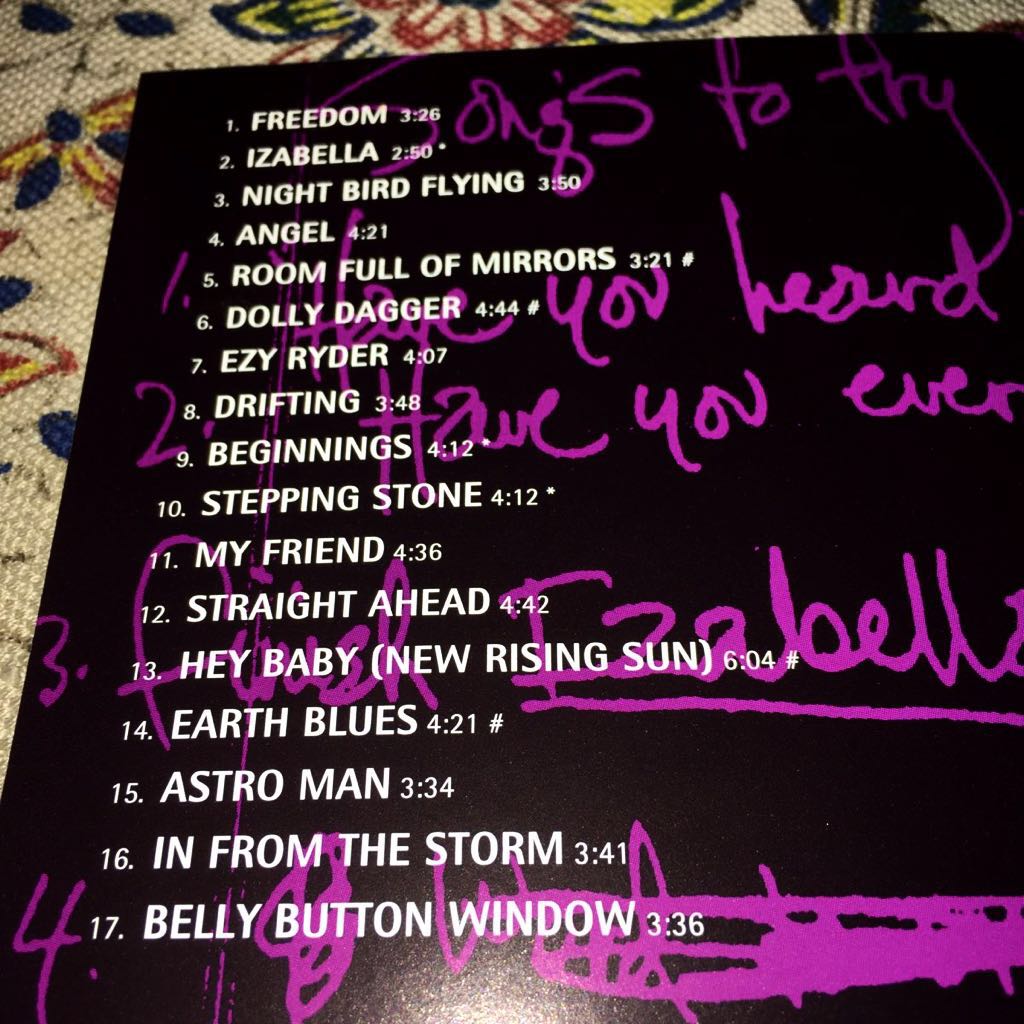 Songs to try
1. FREEDOM 3:26
2. IZABELLA 2:50 *
3. NIGHT BIRD FLYING 3:50
4. ANGEL 4:21
5. ROOM FULL OF MIRRORS 3:21 #
1. Have you heard
6. DOLLY DAGGER 4:44 #
7. EZY RYDER 4:07
8. DRIFTING 3:48
2. Have you ever
9. BEGINNINGS 4:12 *
10. STEPPING STONE 4:12 *
11. MY FRIEND 4:36
12. STRAIGHT AHEAD 4:42
3. Finish Izabella
13. HEY BABY (NEW RISING SUN) 6:04 #
14. EARTH BLUES 4:21 #
15. ASTRO MAN 3:34
16. IN FROM THE STORM 3:41
4.
17. BELLY BUTTON WINDOW 3:36